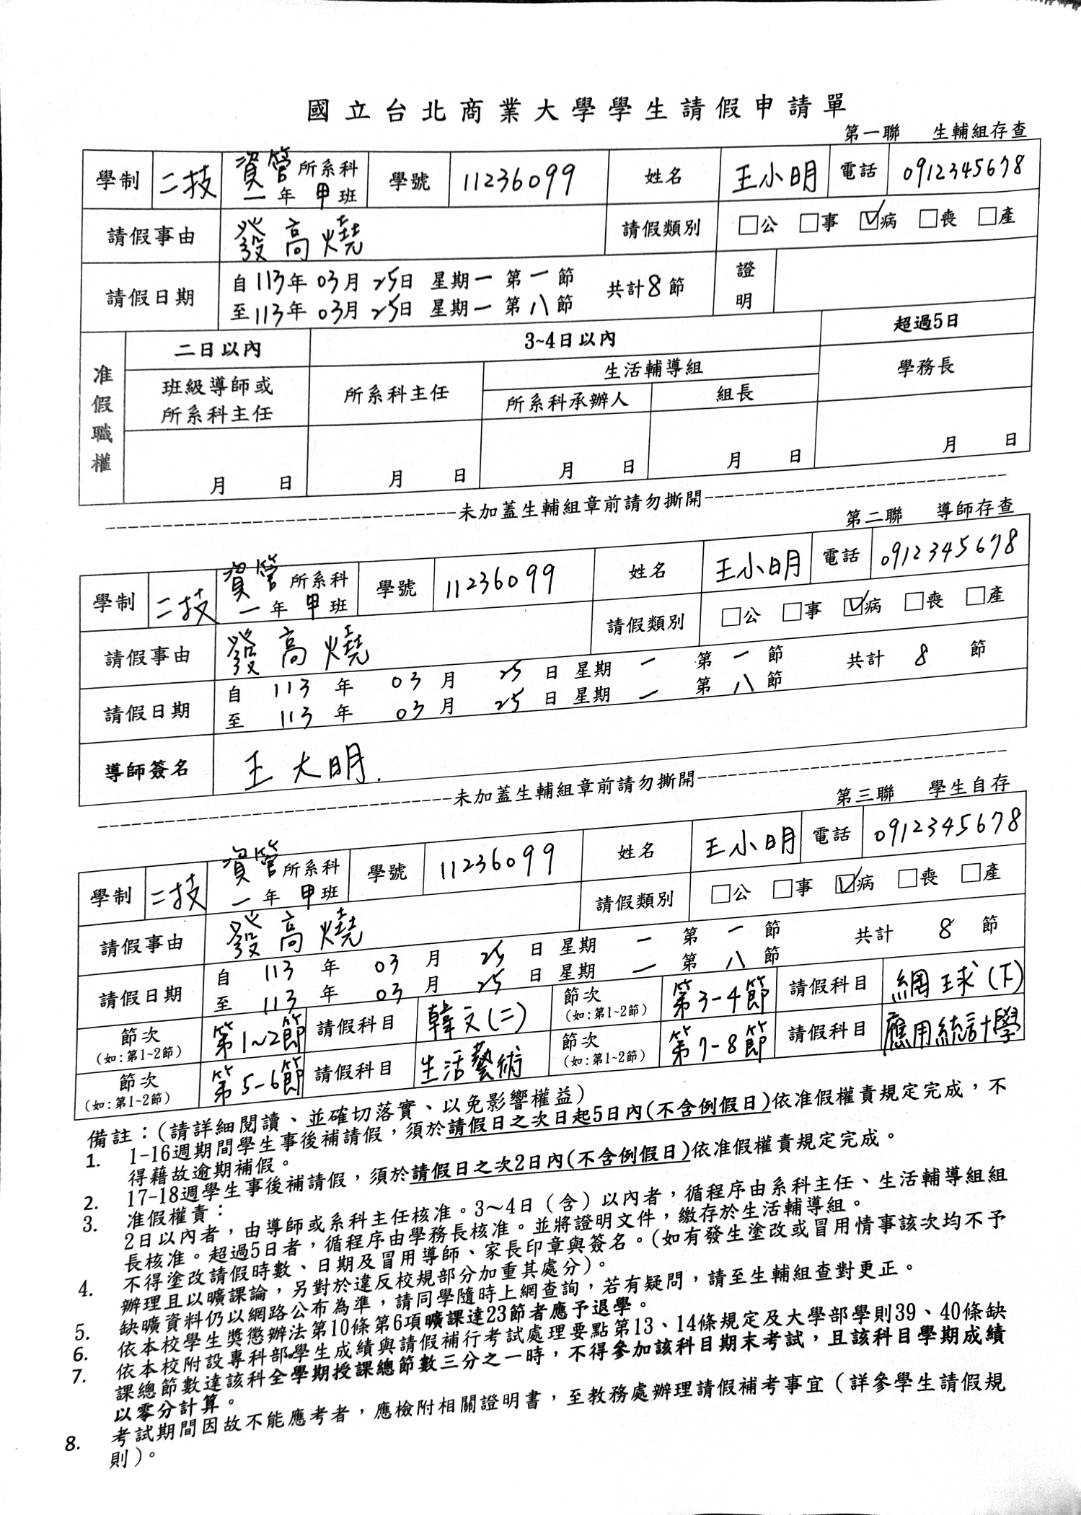 國立台北商業大學學生請假申請單
第一聯 生輔組存查
學制 二技 資管所系科 一年甲班 學號 11236099 姓名 王小明 電話 0912345678
請假事由 發高燒 請假類別 □公 □事 ☑病 □喪 □產
請假日期 自113年03月25日 星期一 第一節 共計8節 證明
至113年03月25日 星期一 第八節
准假職權 二日以內 3~4日以內 超過5日
班級導師或所系科主任 所系科主任 生活輔導組 學務長
所系科承辦人 組長
月 日 月 日 月 日 月 日 月 日
未加蓋生輔組章前請勿撕開
第二聯 導師存查
學制 二技 資管所系科 一年甲班 學號 11236099 姓名 王小明 電話 0912345678
請假事由 發高燒 請假類別 □公 □事 ☑病 □喪 □產
請假日期 自 113 年 03 月 25 日 星期 一 第 一 節 共計 8 節
至 113 年 03 月 25 日 星期 一 第 八 節
導師簽名 王大明.
未加蓋生輔組章前請勿撕開
第三聯 學生自存
學制 二技 資管所系科 一年甲班 學號 11236099 姓名 王小明 電話 0912345678
請假事由 發高燒 請假類別 □公 □事 ☑病 □喪 □產
請假日期 自 113 年 03 月 25 日 星期 一 第 一 節 共計 8 節
至 113 年 03 月 25 日 星期 一 第 八 節
節次(如:第1~2節) 第1~2節 請假科目 韓文(二) 節次(如:第1~2節) 第3-4節 請假科目 網球(下)
節次(如:第1~2節) 第5-6節 請假科目 生活藝術 節次(如:第1~2節) 第7-8節 請假科目 應用統計學
備註：(請詳細閱讀、並確切落實、以免影響權益)
1. 1-16週期間學生事後補請假，須於請假日之次日起5日內(不含例假日)依准假權責規定完成，不
得藉故逾期補假。
2. 17-18週學生事後補請假，須於請假日之次2日內(不含例假日)依准假權責規定完成。
3. 准假權責：
2日以內者，由導師或系科主任核准。3~4日(含)以內者，循程序由系科主任、生活輔導組組
長核准。超過5日者，循程序由學務長核准。並將證明文件，繳存於生活輔導組。
4. 不得塗改請假時數、日期及冒用導師、家長印章與簽名。(如有發生塗改或冒用情事該次均不予
辦理且以曠課論，另對於違反校規部分加重其處分)。
5. 缺曠資料仍以網路公布為準，請同學隨時上網查詢，若有疑問，請至生輔組查對更正。
6. 依本校學生獎懲辦法第10條第6項曠課達23節者應予退學。
7. 依本校附設專科部學生成績與請假補行考試處理要點第13、14條規定及大學部學則39、40條缺
課總節數達該科全學期授課總節數三分之一時，不得參加該科目期末考試，且該科目學期成績
以零分計算。
8. 考試期間因故不能應考者，應檢附相關證明書，至教務處辦理請假補考事宜(詳參學生請假規
則)。